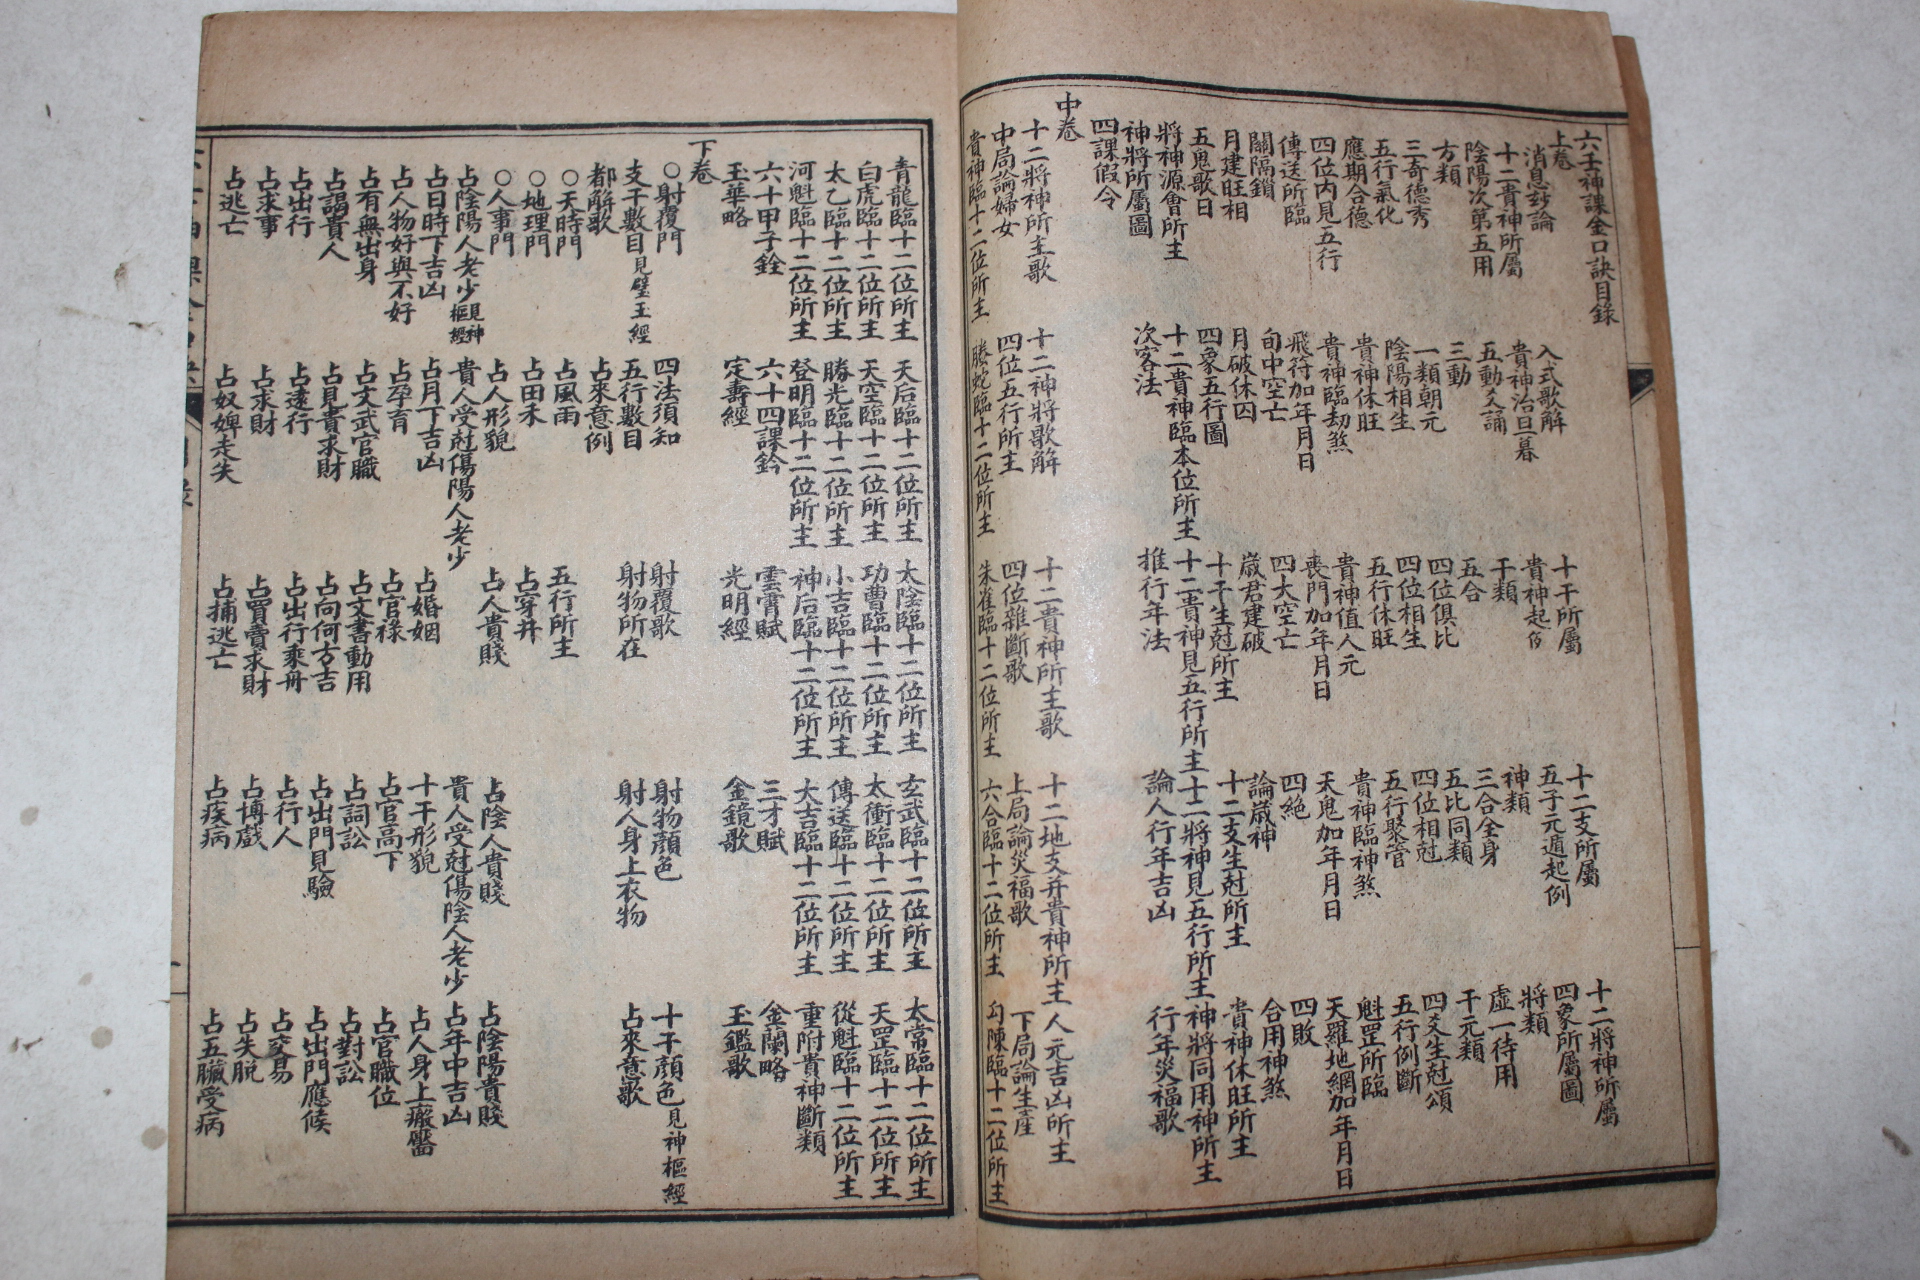 六壬神課金口訣目錄
上卷
消息玅論 入式歌解 十干所屬 十二支所屬 十二將神所屬
十二貴神所屬 貴神治旦暮 貴神起例 五子元遁起例 四象所屬圖
陰陽次第五用 五動爻誦 干類 神類 將類
方類 三動 五合 三合全身 虛一待用
三奇德秀 一類朝元 四位俱比 五比同類 干元類
五行氣化 陰陽相生 四位相生 四位相尅 四爻生尅頌
應期合德 貴神休旺 五行休旺 五行聚管 五行例斷
四位內見五行 貴神臨劫煞 貴神值人元 貴神臨神煞 魁罡所臨
傳送所臨 飛符加年月日 喪門加年月日 天鬼加年月日 天羅地網加年月日
關隔鎖 旬中空亡 四大空亡 四絕 四敗
月建旺相 月破休囚 歲君建破 論歲神 合用神煞
五鬼歌日 四象五行圖 十干生尅所主 十二支生尅所主 貴神休旺所主
將神源會所主 十二貴神臨本位所主 十二貴神見五行所主 十二將神見五行所主 神將同用神所主
神將所屬圖 次客法 推行年法 論人行年吉凶 行年災福歌
四課假令
中卷
十二將神所主歌 十二神將歌解 十二貴神所主歌 十二地支并貴神所主 人元吉凶所主
中局論婦女 四位五行所主 四位雜斷歌 上局論災福歌 下局論生產
貴神臨十二位所主 螣蛇臨十二位所主 朱雀臨十二位所主 六合臨十二位所主 勾陳臨十二位所主
青龍臨十二位所主 天后臨十二位所主 太陰臨十二位所主 玄武臨十二位所主 太常臨十二位所主
白虎臨十二位所主 天空臨十二位所主 功曹臨十二位所主 太衝臨十二位所主 天罡臨十二位所主
太乙臨十二位所主 勝光臨十二位所主 小吉臨十二位所主 傳送臨十二位所主 從魁臨十二位所主
河魁臨十二位所主 登明臨十二位所主 神后臨十二位所主 大吉臨十二位所主 重附貴神斷類
六十甲子銓 六十四課鈐 雲霄賦 三才賦 金蘭略
玉華略 定壽經 光明經 金鏡歌 玉鑑歌
下卷
○射覆門 四法須知 射覆歌 射物顏色 十干顏色見神樞經
支干數目見璧玉經 五行數目 射物所在 射人身上衣物 占來意歌
都解歌 占來意例
○天時門 占風雨 五行所主
○地理門 占田禾 占穿井
○人事門 占人形貌 占人貴賤 占陰人貴賤 占陰陽貴賤
占陰陽人老少見神樞經 貴人受尅傷陽人老少 貴人受尅傷陰人老少 占年中吉凶
占日時下吉凶 占月下吉凶 占婚姻 十干形貌 占人身上癥靨
占人物好與不好 占孕育 占官祿 占官高下 占官職位
占有無出身 占文武官職 占文書動用 占詞訟 占對訟
占謁貴人 占見貴求財 占向何方吉 占出門見驗 占出門應候
占出行 占遠行 占出行乘舟 占行人 占交易
占求事 占求財 占買賣求財 占博戲 占失脫
占逃亡 占奴婢走失 占捕逃亡 占疾病 占五臟受病